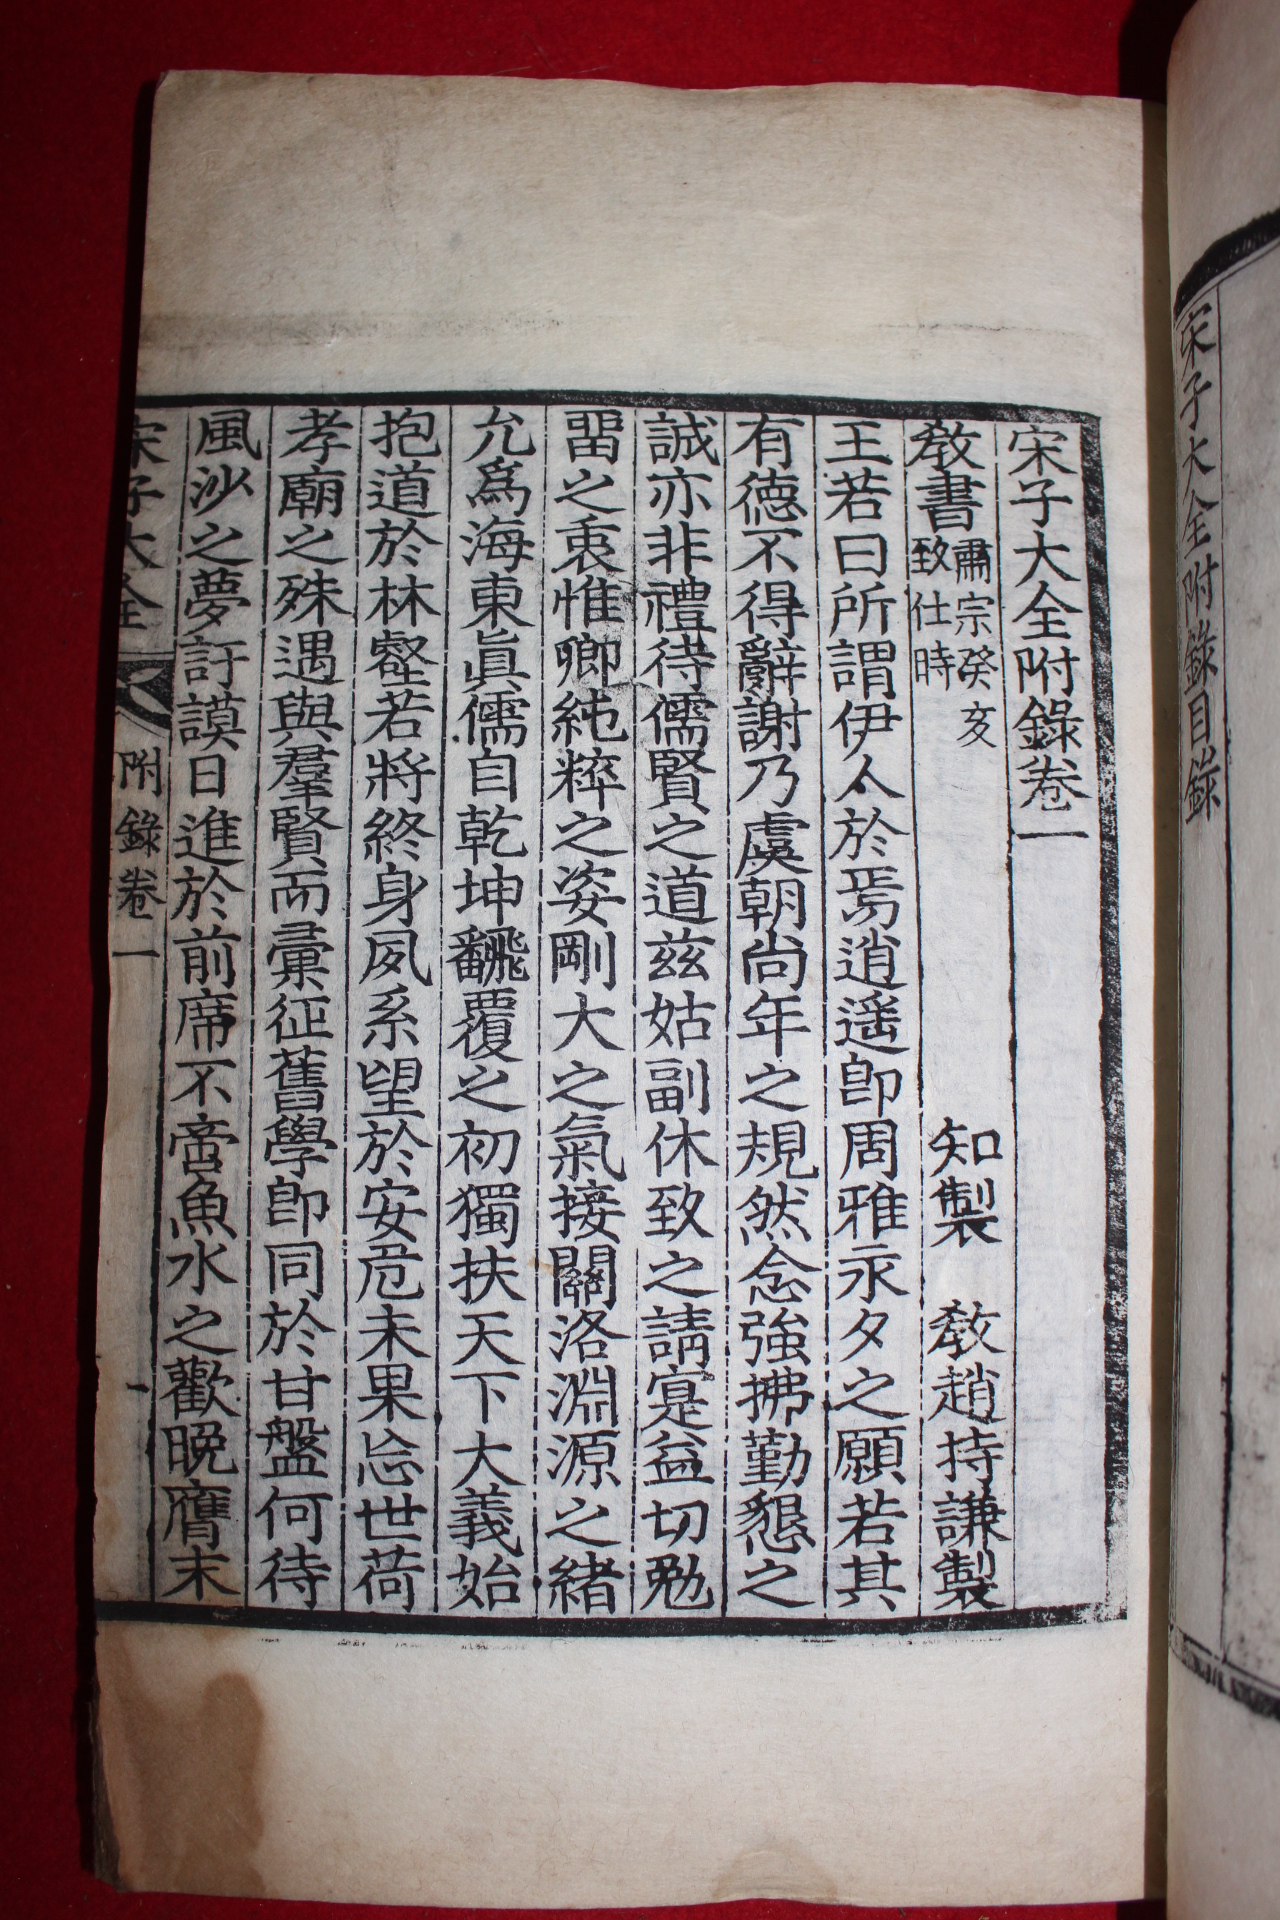 宋子大全附錄目錄
宋子大全附錄卷一
敎書肅宗癸亥致仕時 知製 敎趙持謙製
王若曰所謂伊人於焉逍遙卽周雅永夕之願若其
有德不得辭謝乃虞朝尙年之規然念強拂勤懇之
誠亦非禮待儒賢之道茲姑副休致之請寔益切勉
留之衷惟卿純粹之姿剛大之氣接關洛淵源之緖
允爲海東眞儒自乾坤飜覆之初獨扶天下大義始
抱道於林壑若將終身夙系望於安危未果忘世荷
孝廟之殊遇與羣賢而彙征舊學卽同於甘盤何待
風沙之夢訏謨日進於前席不啻魚水之歡晩膺末
宋子大全 附錄卷一 一